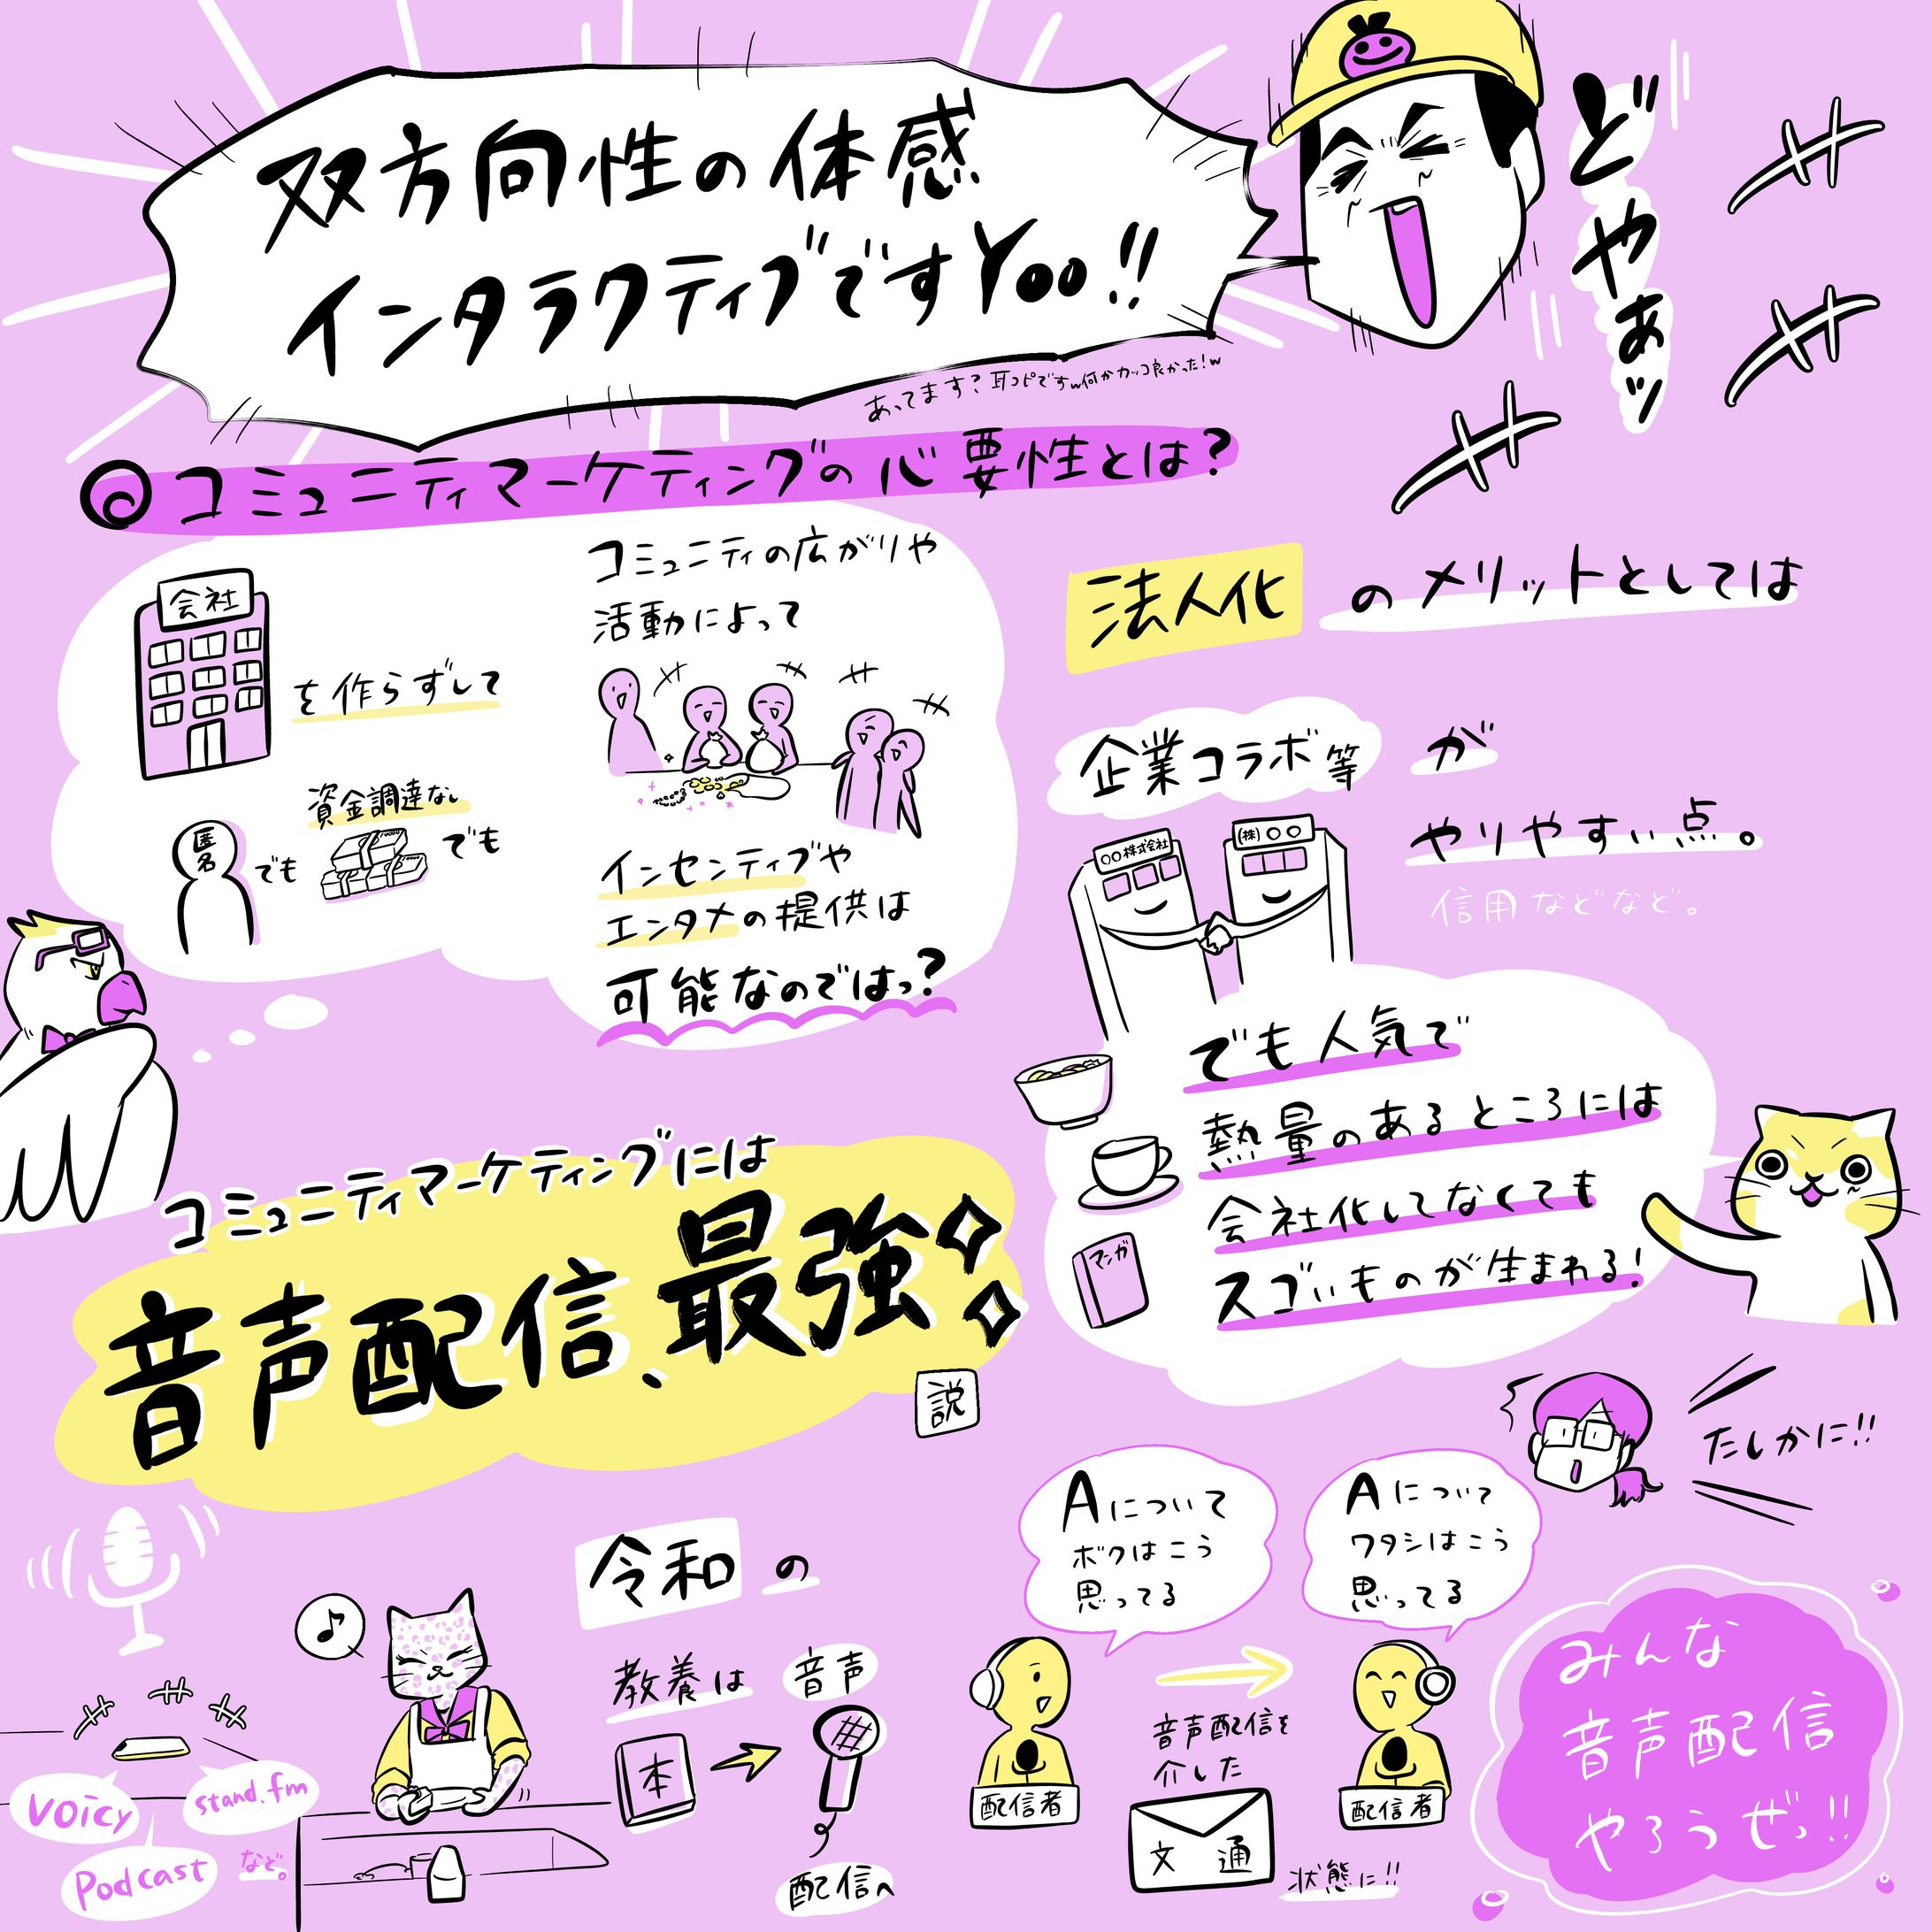 双方向性の体感
インタラクティブですYoo!!
あってます?耳コピですw何かカッコ良かった!w
どやぁッ
◎コミュニティマーケティングの必要性とは?
会社
を作らずして
匿名
でも
資金調達なし
でも
コミュニティの広がりや
活動によって
インセンティブや
エンタメの提供は
可能なのではっ?
法人化のメリットとしては
企業コラボ等が
やりやすい点。
信用などなど。
〇〇株式会社
(株)〇〇
でも人気で
熱量のあるところには
会社化してなくても
スゴいものが生まれる!
マンガ
たしかに!!
コミュニティマーケティングには
音声配信、最強
説
令和の
教養は
本
音声
配信へ
voicy
stand.fm
Podcast
など。
Aについて
ボクはこう
思ってる
配信者
音声配信を
介した
文通
状態に!!
Aについて
ワタシはこう
思ってる
配信者
みんな
音声配信
やろうぜっ!!